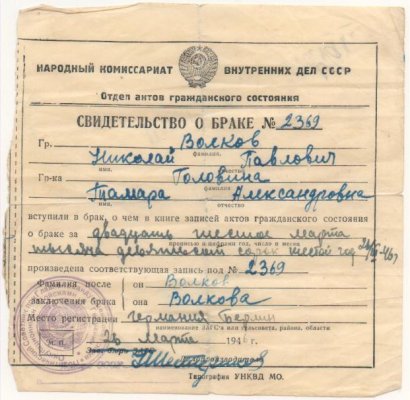 НАРОДНЫЙ КОМИССАРИАТ ВНУТРЕННИХ ДЕЛ СССР
Отдел актов гражданского состояния
СВИДЕТЕЛЬСТВО О БРАКЕ № 2369
Гр. Волков
фамилия
Николай Павлович
имя отчество
Гр-ка Головина
фамилия
Тамара Александровна
имя отчество
вступили в брак, о чем в книге записей актов гражданского состояния
о браке за двадцать шестое марта
прописью и цифрами год, число и месяц
тысяча девятьсот сорок шестой год
произведена соответствующая запись под № 2369
Фамилия после он Волков
заключения брака она Волкова
Место регистрации Германия Берлин
наименование ЗАГС'а или сельсовета, района, области
26 марта 1946 г.
М. П.
Зав. бюро ЗАГС
Делопроизводитель
Типография УНКВД МО.